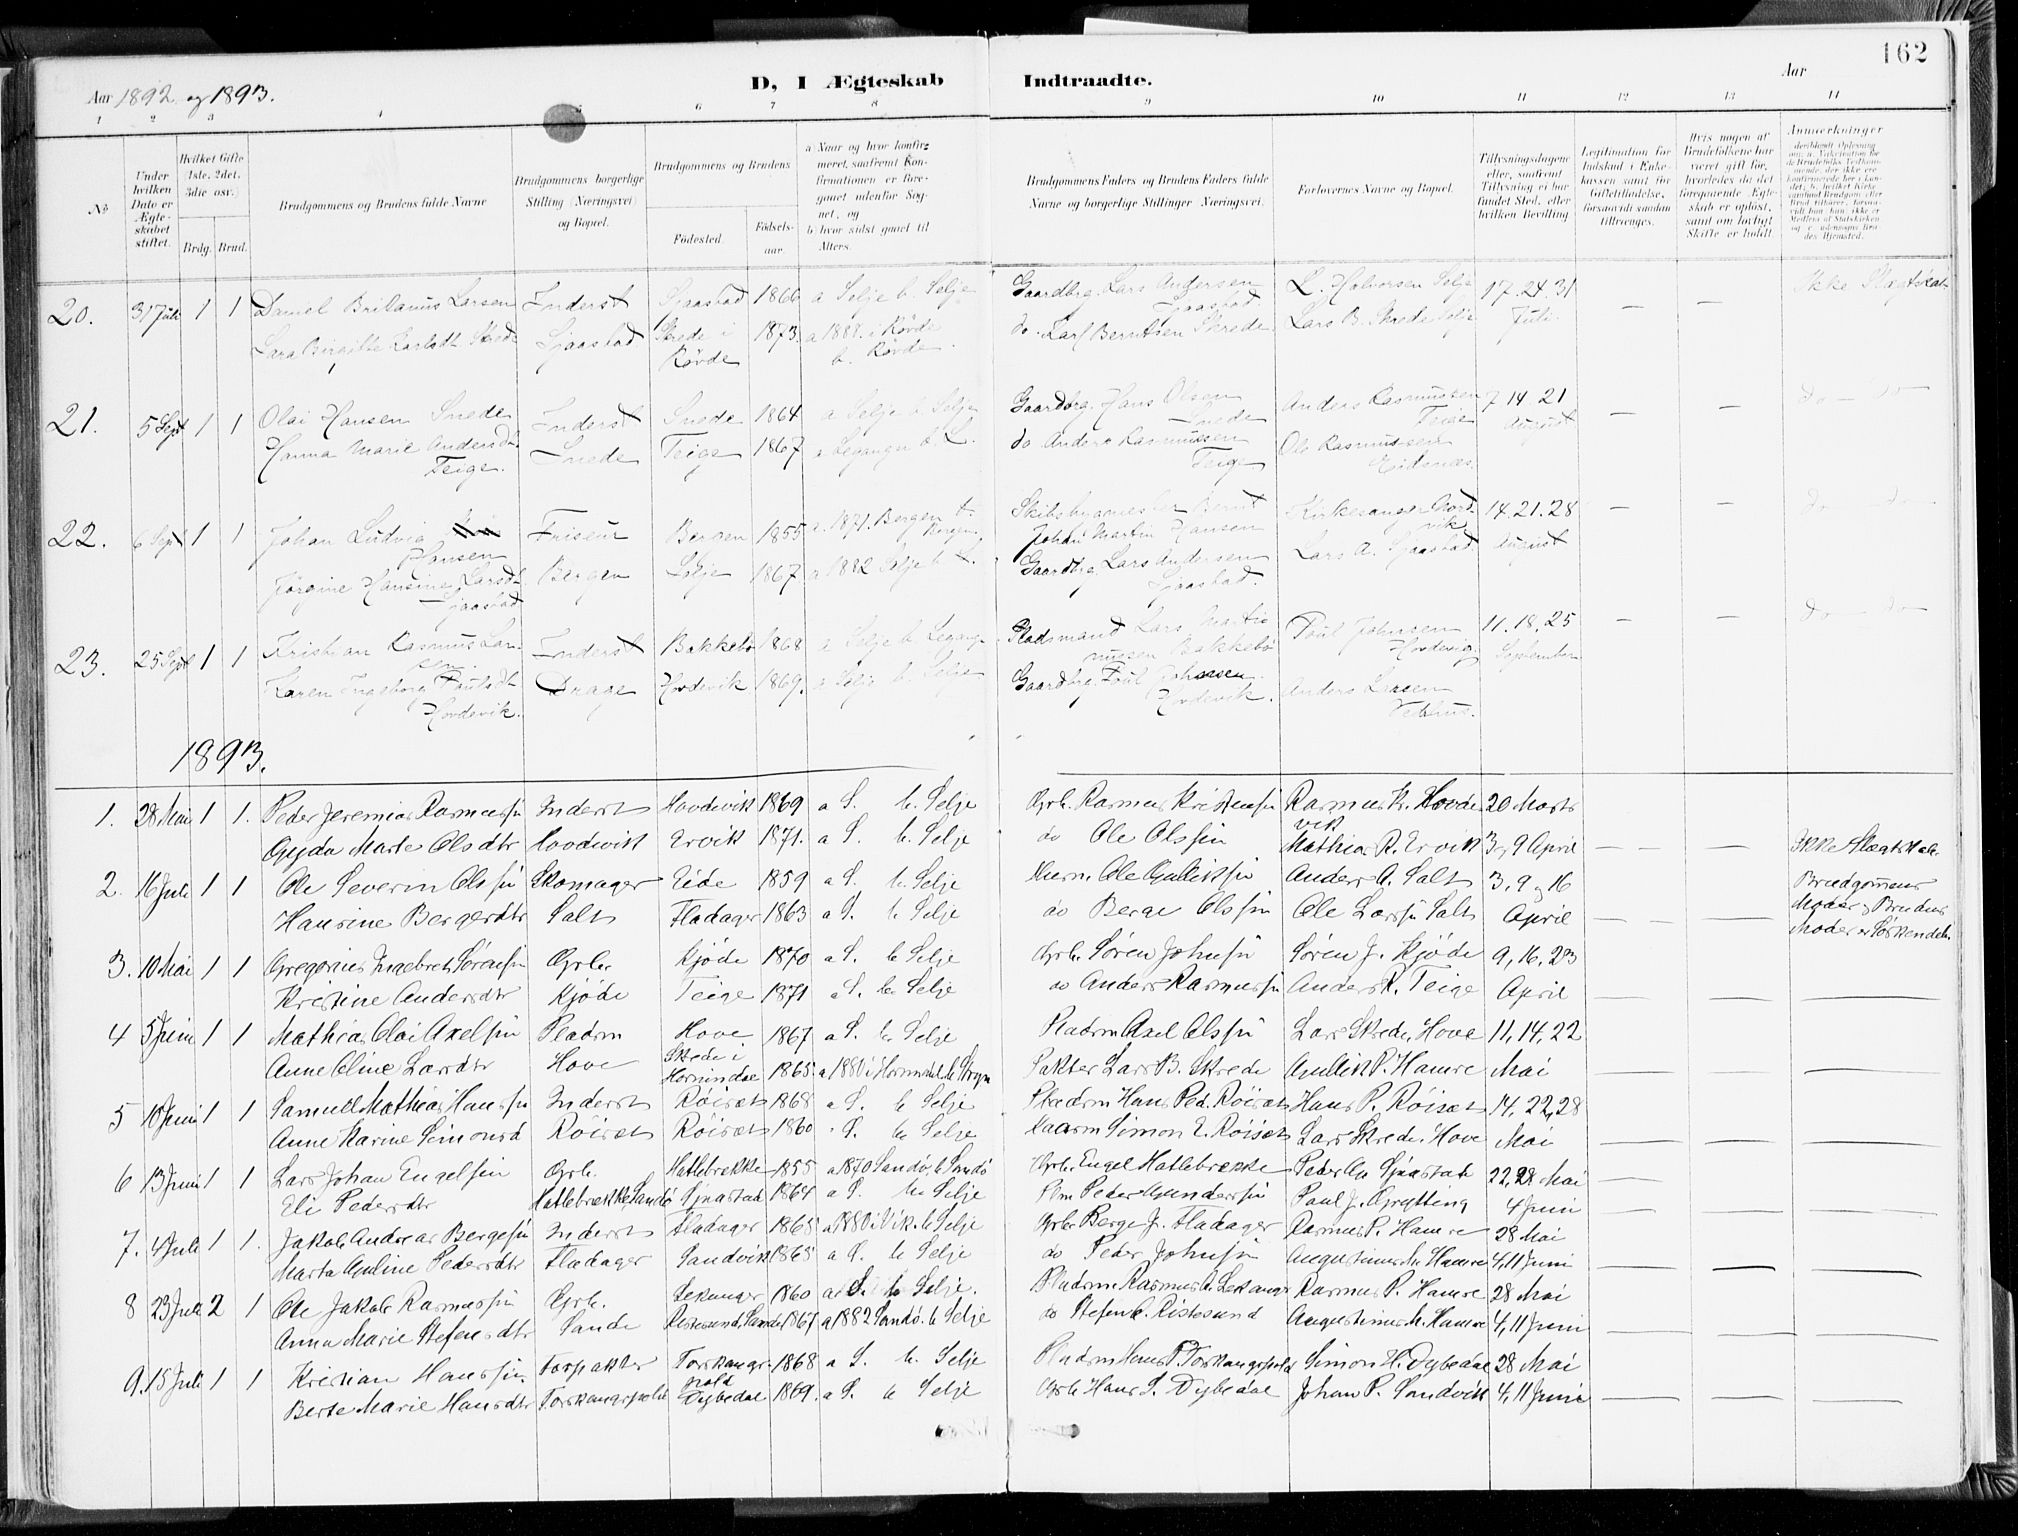 162
Aar 1892 og 1893.
D, I Ægteskab Indtraadte.
Aar
1 2 3 4 5 6 7 8 9 10 11 12 13 14
No
Under hvilken Dato er Ægteskabet stiftet.
Hvilket Gifte 1ste, 2det, 3die osv.
Brdg. Brud.
Brudgommens og Brudens fulde Navne
Brudgommens borgerlige Stilling (Næringsvei) og Bopæl.
Brudgommens og Brudens
Fødested.
Fødselsaar.
a) Naar og hvor konfirmeret, saafremt Konfirmationen er foregaaet udenfor Sognet, og
b) hvor sidst gaaet til Alters.
Brudgommens Faders og Brudens Faders fulde Navne og borgerlige Stillinger (Næringsvei).
Forlovernes Navne og Bopæl.
Tillysningsdagene eller, saafremt Tillysning ei har fundet Sted, efter hvilken Bevilling
Legitimation for Indskud i Enkekassen samt for Giftetilladelse, forsaavidt saadan tiltrænges.
Hvis nogen af Brudefolkene har været gift før, hvorledes da det foregaaende Ægteskab er opløst, samt om lovligt Skifte er holdt.
Anmerkninger
20. 31 Juli 1 1 Daniel Britanus Larsen Inderst Sjaastad 1866 a Selje b. Selje Gaardbrg. Lars Andersen Sjaastad L. Halvorsen Selje 17. 24. 31 Juli — — Ikke Slægtskab
Lara Birgitte Karlsdt. Skrede Sjaastad Skrede i Røvde 1873. a 1888. i Røvde b. Røvde. do. Karl Berntsen Skrede Lars B. Skrede Selje
21. 5 Sept 1 1 Olai Hansen Snede Inderst Snede 1864 a Selje b. Selje Gaardbrg. Hans Olsen Snede Anders Rasmussen Teige 7 14. 21 August — — do — do
Hanna Marie Andersdt. Teige. Snede Teige 1867 do Anders Rasmussen Teige Ole Rasmussen
22. 6 Sept 1 1 Johan Ludvig Hansen Friseur Bergen 1855 a. 1871. Bergen b. Bergen. Bernt Johan Martin Hansen Kirkesanger Nordvik 14. 21. 28 August — — do — do
Jørgine Hansine Larsdt. Sjaastad Bergen Selje 1867 a 1882 Selje b. S. Gaardbrg. Lars Andersen Sjaastad. Lars A. Sjaastad
23. 25 Sept 1 1 Kristian Rasmus Larsen Inderst Bakkebø 1868 a Selje b. Pladsmand Lars Bakkebø Paul Johnsen Hovdevig 11. 18. 25 September — — do — do
Karen Ingeborg Paulsdt. Hovdevik. Drage Hovdevik 1869. a Selje b. Selje Gaardbrg. Paul Johnsen Hovdevik. Anders Larsen
1893.
1. 28 Mai 1 1. Peder Jeremias Rasmussøn Inderst Hovdevik 1869 a S. b. Selje Grb. Rasmus Kristensøn Rasmus K. Hovdevik 20 Marts
Gyda Marte Olsdtr Hovdevik Ervik 1871. a S. b. Selje do Ole Olssøn Mathias R. Ervik 3, 9 April — — — Ikke Slægtskab.
2. 16 Juli 1 1 Ole Severin Olssøn Skomager Eide 1859 a S. b. Selje Ole Gulliksøn Anders A. Salt 3, 9 og 16
Hansine Bergesdtr Salt Fladager 1863 a S. b Selje do Berge Olssøn Ole Larsøn Salt April — — — Brudgommens Moder og Brudens Moder er Søskendeb.
3. 10 Mai 1 1 Gregorius Ingebret Sørensøn Grb. Kjøde 1870 a S. b Selje Grb. Søren Johnsøn Søren J. Kjøde 9, 16, 23
Kristine Andersdtr Kjøde Teige 1871 a S. b. Selje do Anders Rasmussøn Anders R. Teige April — — —
4 5 Juni 1 1 Mathias Olai Axelsøn Pladsm Hove 1867 a S. b Selje Pladsm Axel Olssøn Lars Skrede, Hove 11, 14, 22
Anne Oline Larsdtr Hove Skrede i Hornindal 1865 a 1880 i Hornindal b Stryn Pakter Lars B. Skrede Gullik P. Hamre Mai — — —
5 10 Juni 1 1 Samuel Mathias Hanssøn Inderst Røiset 1868 a S. b Selje Pladsm Hans Ped. Røiset Hans P. Røiset 14, 22, 28
Anne Karine Simonsd Røiset Røiset 1860 a S. b Selje Simon E. Røiset Lars Skrede, Hove Mai — — —
6 13 Juni 1 1 Lars Johan Engelsøn Grb. Hatlebrække 1855 a 1870 Sandø, b Sandø Grb. Engel Hatlebrække Peder Sjaastad 22, 28 Mai —
Eli Pedersdtr Hatlebrække, Sandø Sjaastad 1864 a S. b. Selje Plm Peder Gundersøn Paul J. Grytting 4 Juni — — —
7. 4 Juli 1 1. Jakob Andreas Bergesøn Inderst Fladager 1865 a 1880 i Vik. b Selje Grbr Berge J. Fladager Rasmus P. Hamre 28 Mai
Marta Guline Pedersdtr Fladager Sandvik 1865 a S. b Selje do Peder Johnsøn Augustinus M. Hamre 4, 11 Juni — — —
8 23 Juli 2 1 Ole Jakob Rasmussøn Grb. Lekanger 1860 a S. b Selje. Pladsm Rasmus A. Lekanger Rasmus P. Hamre 28 Mai
Anna Marie Stefensdtr Sande Ristesund, Sande 1867 a 1882 Sandø. b Selje do Stefen C. Ristesund Augustinus M. Hamre 4, 11 Juni — — —
9. 15 Juli 1 1 Kristian Hanssøn Forpakter Torskangerpold 1868 a S. b. Selje Pladsm Hans P. Torskangerpold Simon H. Dybedal 28 Mai
Berte Marie Hansdtr Torskangerpold Dybedal 1869. a S. b Selje Grb Hans S. Dybedal Johan P. Sandvik 4, 11 Juni — — —